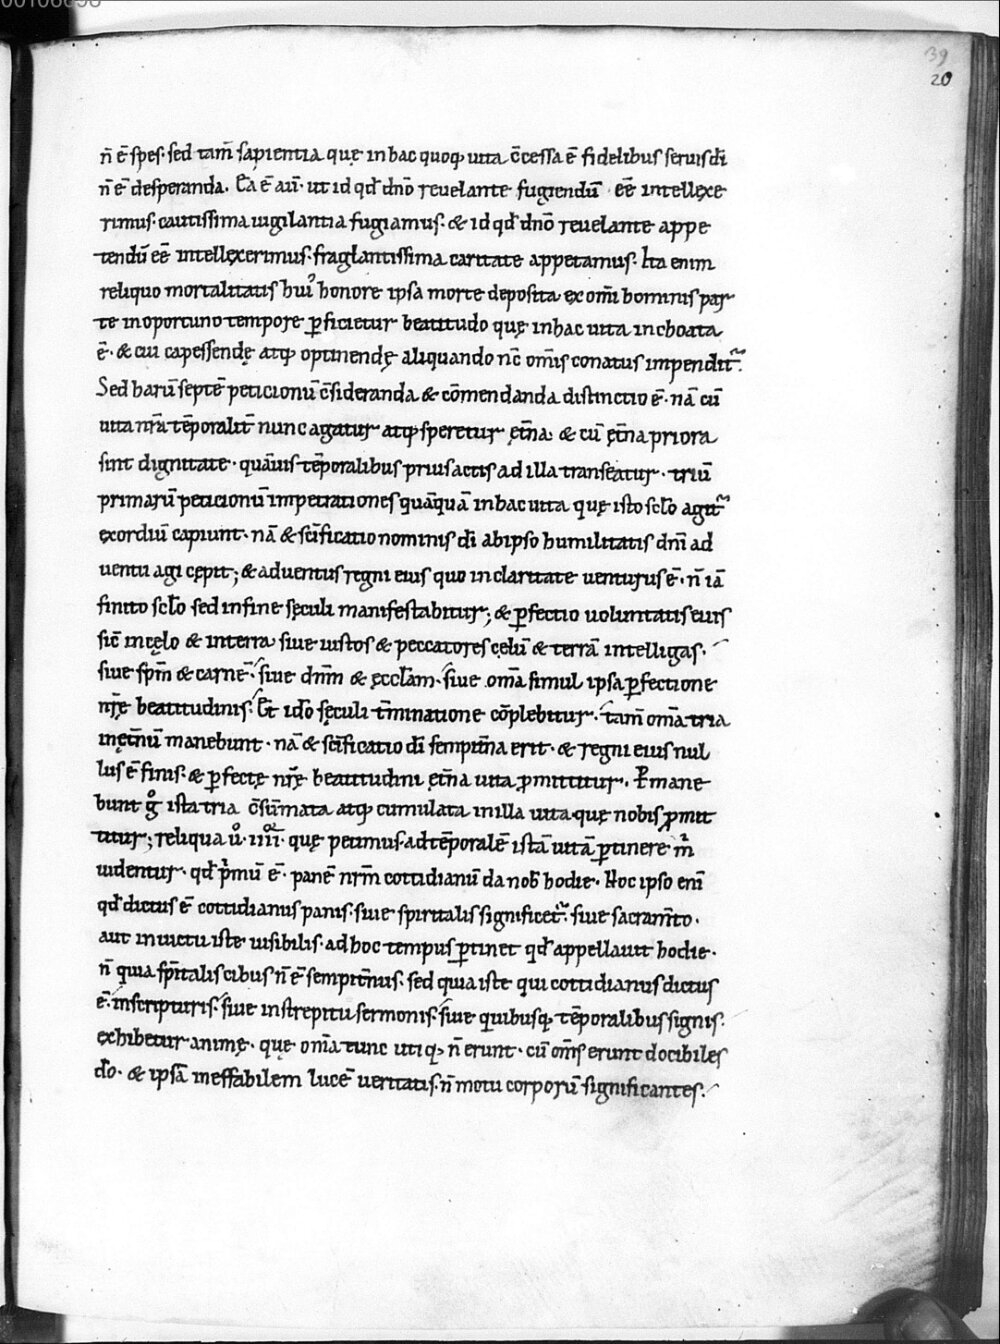 00106698
39
20
n̄ ē spes· sed tam̄ sapientia quę in hac quoq; uita c̄cessa ē fidelibus seruis dī
n̄ ē desperanda. Ea ē aū· ut id qd̄ dn̄o reuelante fugiendū eē intellexe
rimus· cautissima uigilantia fugiamus· & id qd̄ dn̄o reuelante appe
tendū eē intellexerimus· fraglantissima caritate appetamus. Ita enim
reliquo mortalitatis hui᾽ honore ipsa morte deposita ex om̄i hominis par
te in oportuno tempore p̱ficietur beatitudo quę in hac uita inchoata
ē· & cui capessendę atq; optinendę aliquando nc̄ om̄is conatus impendit᷑.
Sed harū septē peticionū c̄sideranda & cōmendanda distinctio ē· nā cū
uita nr̄a tēporalit̄ nunc agatur atq; speretur ęt̄na· & cū ęt̄na priora
sint dignitate· quāuis tēporalibus prius actis ad illa transeatur· triū
primarū peticionū impetrationes quāquā in hac uita quę isto sc̄lo agit᷑
exordiū capiunt· nā & sc̄ificatio nominis dī ab ipso humilitatis dnī ad
uentu agi cępit; & aduentus regni eius quo in claritate uenturus ē· n̄ iā
finito sc̄lo sed in fine sęculi manifestabitur; & p̱fectio uoluntatis eius
sic̄ in cęlo & in terra siue iustos & peccatores cęlū & terrā intelligas·
siue sp̄m & carnē· siue dn̄m & ęccl̄am· siue om̄a simul ipsa p̱fectione
nr̄ę beatitudinis· Et ido sęculi t̄minatione cōplebitur· tam̄ om̄a tria
in ęt̄nū manebunt· nā & sc̄ificatio dī sempit̄na erit· & regni eius nul
lus ē finis· & p̱fectę nr̄ę beatitudini ęt̄na uita p̱mittitur. P̱mane
bunt gͦ ista tria c̄sūmata atq; cumulata in illa uita quę nobis p̱mit
titur; reliqua uͦ· iiii· quę petimus· ad tēporalē istā uitā p̱tinere m̄
uidentur· qd̄ p̄mū ē· panē nrm̄ cottidianū da nob̄ hodie· Hoc ipso enī
qd̄ dictus ē cottidianus panis· siue spiritalis significet᷑· siue sacram̄to·
aut in uictu iste uisibilis· ad hoc tempus p̱tinet qd̄ appellauit hodie·
n̄ quia sp̄italis cibus n̄ ē sempit̄nus· sed quia iste qui cottidianus dictus
ē· in scripturis· siue in strepitu sermonis· siue quibusq; tēporalibus signis·
exhibetur animę· quę om̄a tunc utiq; n̄ erunt· cū om̄s erunt docibiles
do· & ipsā ineffabilem lucē ueritatis· n̄ motu corporū significantes·